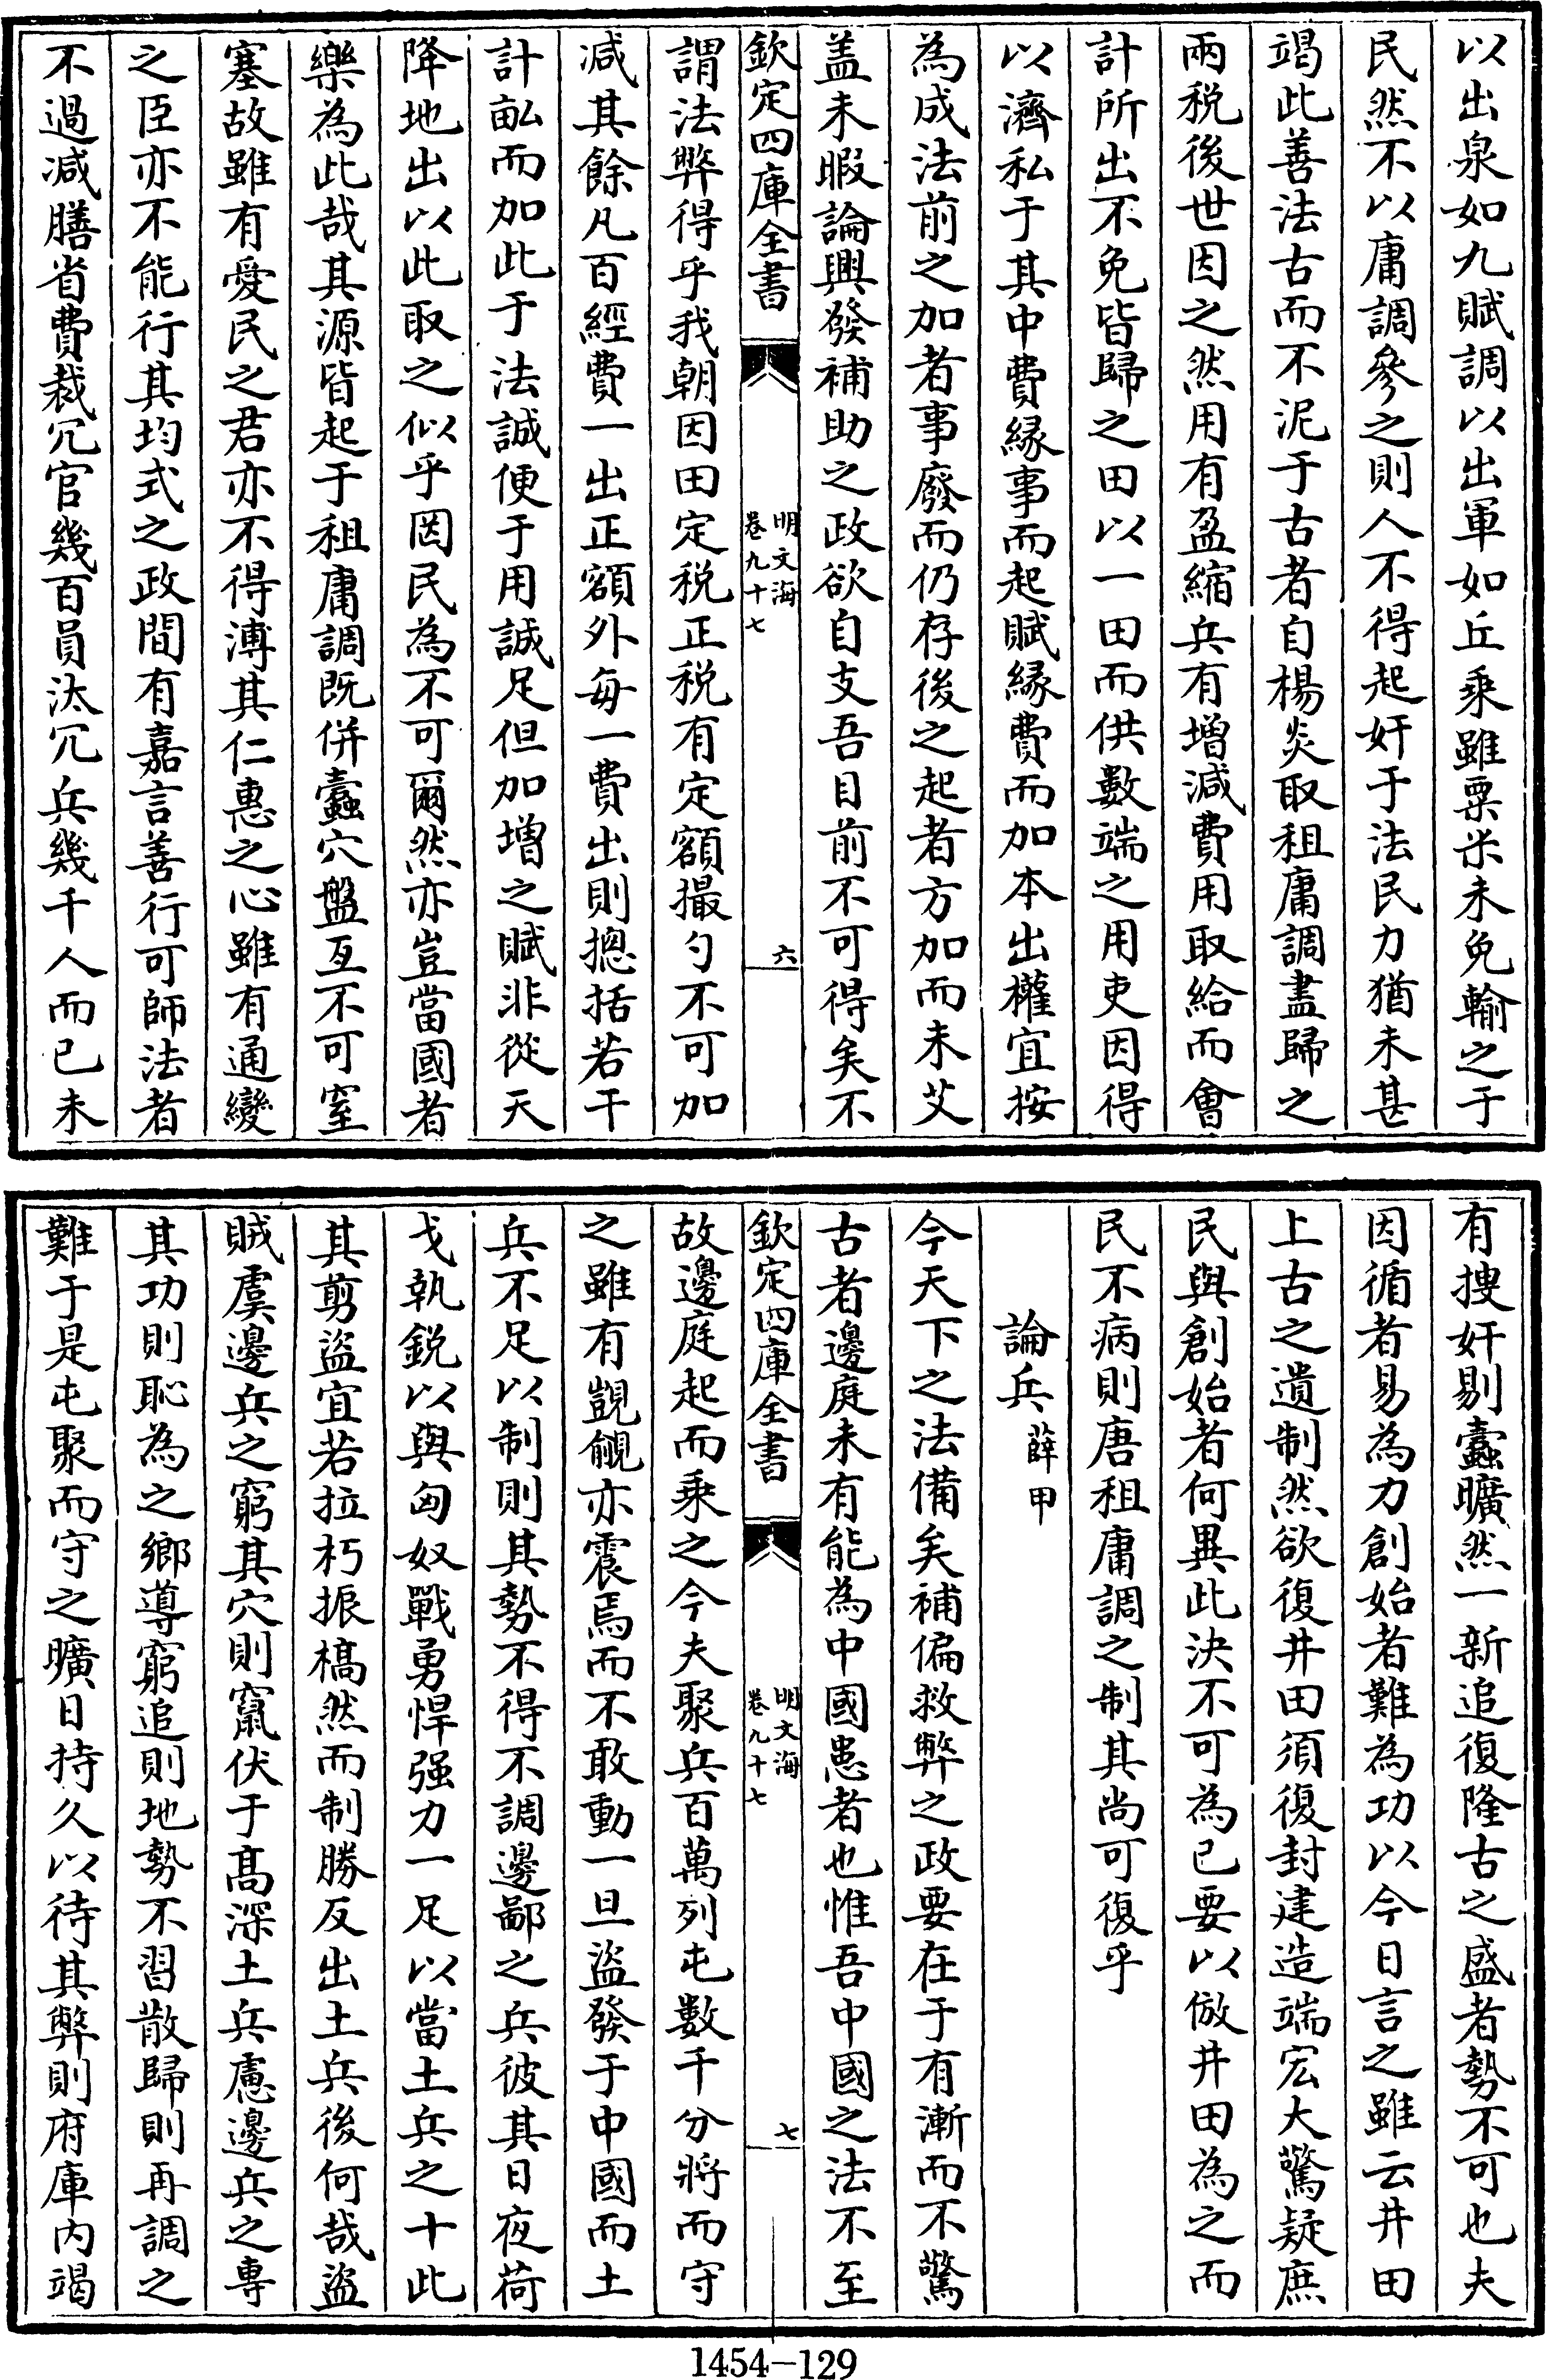 以出泉如九賦調以出軍如丘乘雖粟米未免輸之于
民然不以庸調參之則人不得起奸于法民力猶未甚
竭此善法古而不泥于古者自楊炎取租庸調盡歸之
兩税後世因之然用有盈縮兵有增減費用取給而會
計所出不免皆歸之田以一田而供數端之用吏因得
以濟私于其中費緣事而起賦緣費而加本出權宜按
為成法前之加者事廢而仍存後之起者方加而未艾
盖未暇論興發補助之政欲自支吾目前不可得矣不
欽定四庫全書
明文海
卷九十七
六
謂法弊得乎我朝因田定税正税有定額撮勺不可加
減其餘凡百經費一出正額外每一費出則摠括若干
計畝而加此于法誠便于用誠足但加增之賦非從天
降地出以此取之似乎罔民為不可爾然亦豈當國者
樂為此哉其源皆起于租庸調既併蠹穴盤互不可窒
塞故雖有愛民之君亦不得溥其仁惠之心雖有通變
之臣亦不能行其均式之政間有嘉言善行可師法者
不過減膳省費裁冗官幾百員汰冗兵幾千人而已未
有搜奸剔蠹曠然一新追復隆古之盛者勢不可也夫
因循者易為力創始者難為功以今日言之雖云井田
上古之遺制然欲復井田須復封建造端宏大驚疑庶
民與創始者何異此決不可為已要以倣井田為之而
民不病則唐租庸調之制其尚可復乎
論兵 薛甲
今天下之法備矣補偏救弊之政要在于有漸而不驚
古者邊庭未有能為中國患者也惟吾中國之法不至
欽定四庫全書
明文海
卷九十七
七
故邊庭起而乘之今夫聚兵百萬列屯數千分將而守
之雖有覬覦亦震焉而不敢動一旦盜發于中國而土
兵不足以制則其勢不得不調邊鄙之兵彼其日夜荷
戈執鋭以與匈奴戰勇悍强力一足以當土兵之十此
其剪盜宜若拉朽振槁然而制勝反出土兵後何哉盜
賊虞邊兵之窮其穴則竄伏于髙深土兵慮邊兵之專
其功則恥為之鄉導窮追則地勢不習散歸則再調之
難于是屯聚而守之曠日持久以待其弊則府庫内竭
1454—129